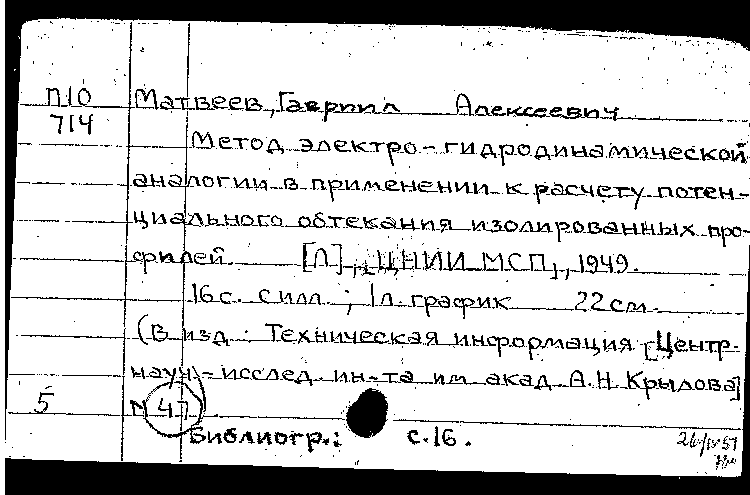 П10 Матвеев, Гавриил Алексеевич
714
Метод электро-гидродинамической
аналогии в применении к расчету потен-
циального обтекания изолированных про-
филей. [Л], [ЦНИИ МСП], 1949.
16 с. с илл.; 1 л. график 22 см.
(В изд.: Техническая информация [Центр.
научн.-исслед. ин-та им. акад. А.Н. Крылова]
5 №47)
Библиогр.: с.16.
26/IV 51